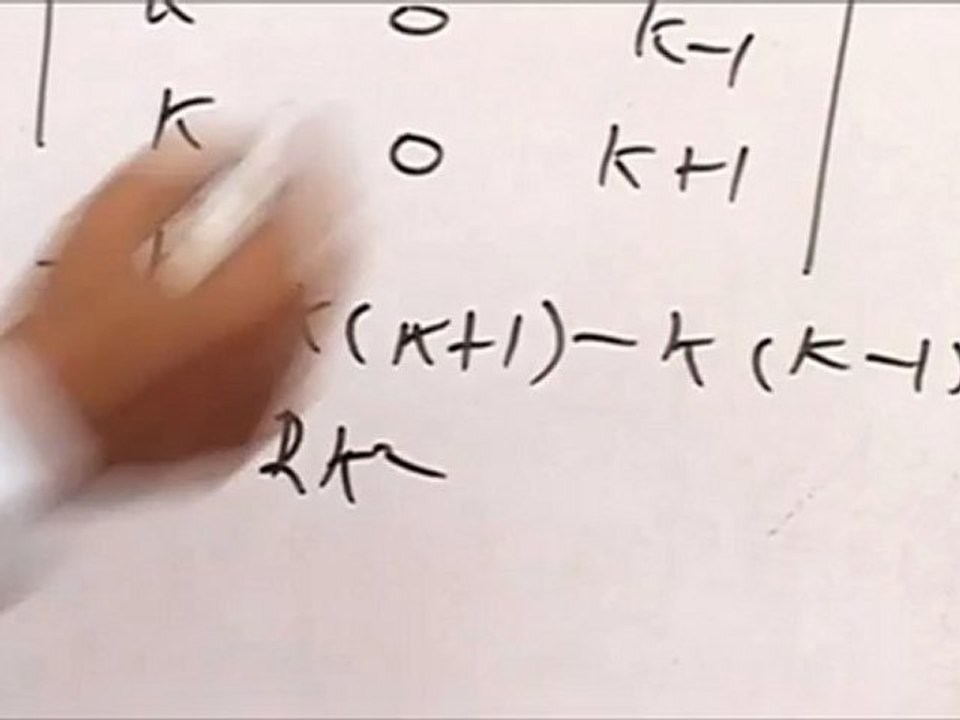 0 k-1
K 0 k+1
(k+1)-k(k-1)
2k